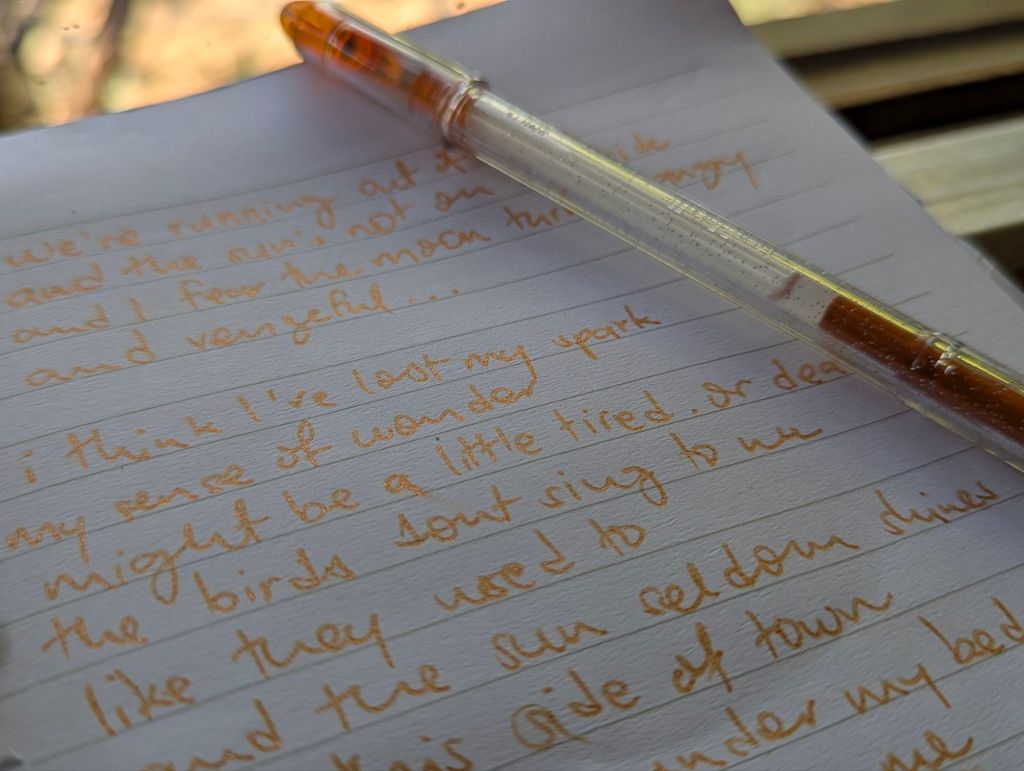 we're running out
and the sun's not on side
and I fear the moon turn angry
and vengeful...
i think I've lost my spark
my sense of wonder
might be a little tired. or dea
the birds dont sing to me
like they used to
and the sun seldom shines
this side of town
under my bed
me